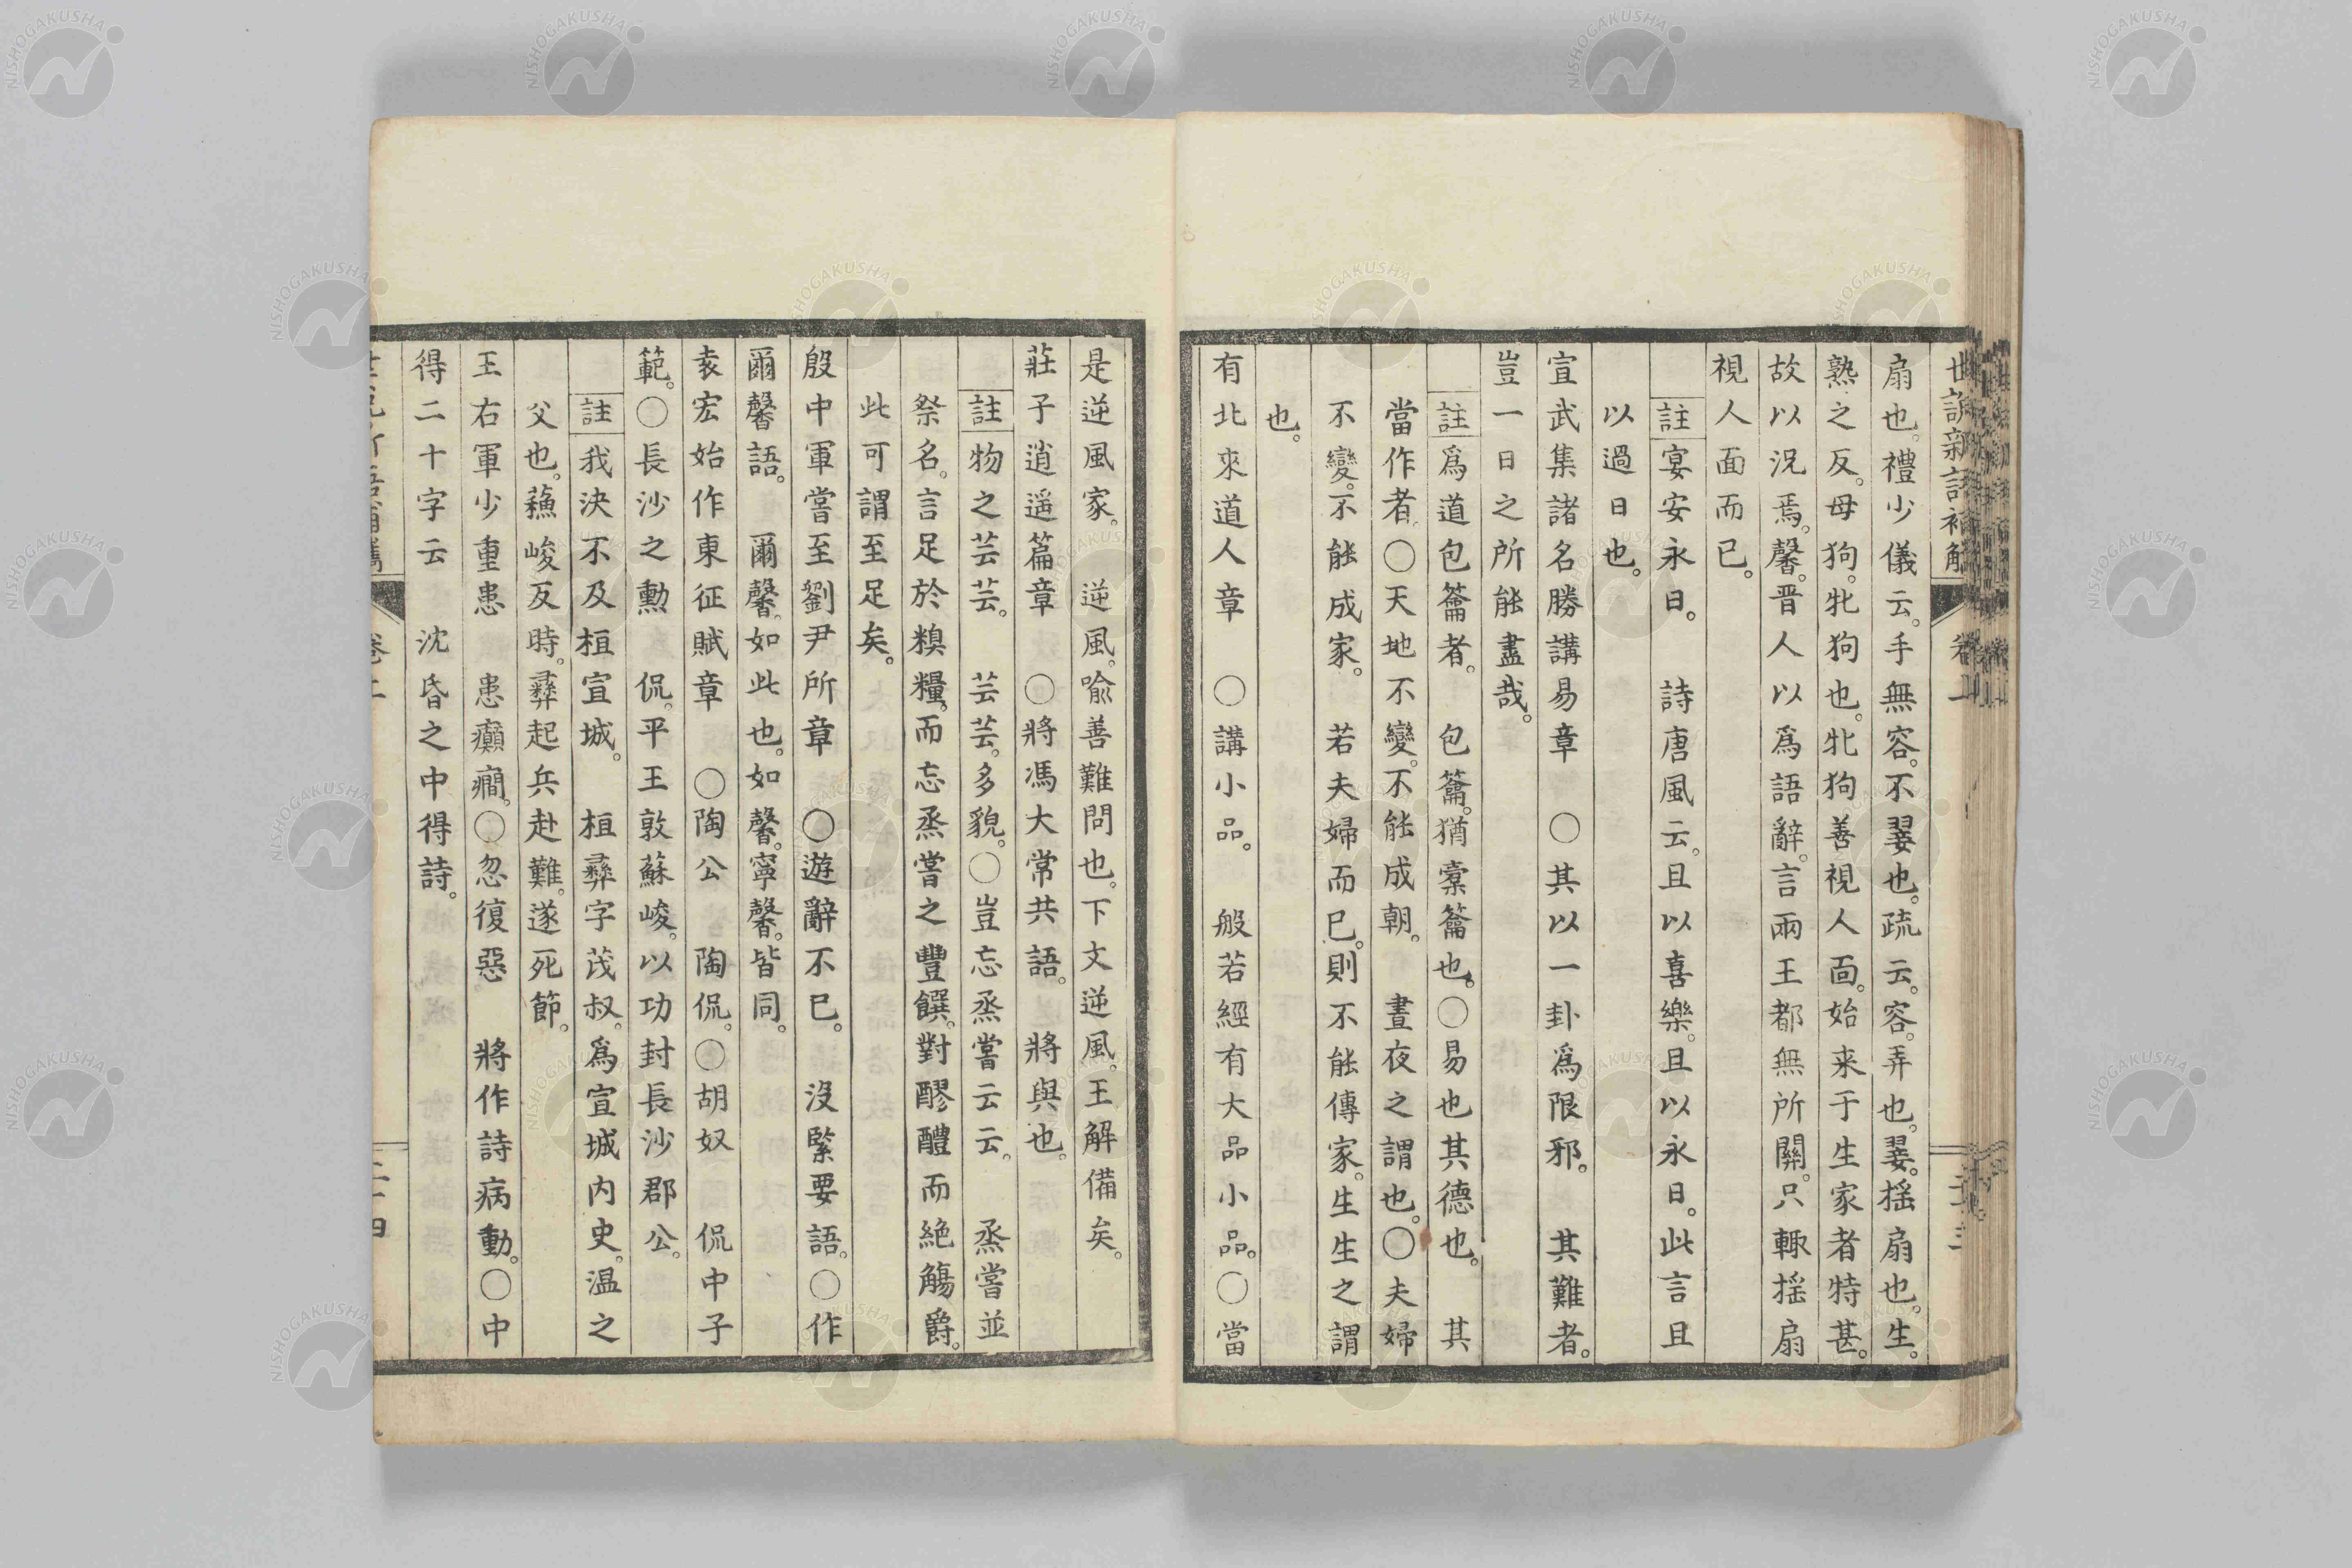 扇也。禮少儀云。手無容。不翣也。疏云。容。弄也。翣。揺扇也。生。
熟之反。母狗。牝狗也。牝狗善視人面。始来于生家者特甚。
故以況焉。馨。晋人以爲語辭。言兩王都無所關。只輙揺扇
視人面而已。
註宴安永日。 詩唐風云。且以喜樂。且以永日。此言且
以過日也。
宣武集諸名勝講易章 〇其以一卦爲限邪。 其難者。
豈一日之所能盡哉。
註爲道包籥者。 包籥。猶橐籥也。〇易也其德也。 其
當作者。〇天地不變。不能成朝。 晝夜之謂也。〇夫婦
不變。不能成家。 若夫婦而已。則不能傳家。生生之謂
也。
有北來道人章 〇講小品。 般若經有大品小品。〇當
是逆風家。 逆風。喩善難問也。下文逆風。王解備矣。
莊子逍遥篇章 〇將馮大常共語。 將與也。
註物之芸芸。 芸芸。多貌。〇豈忘烝嘗云云。 烝嘗並
祭名。言足於糗糧。而忘烝嘗之豐饌。對醪醴而絶觴爵。
此可謂至足矣。
殷中軍嘗至劉尹所章 〇遊辭不已。 沒緊要語。〇作
爾馨語。 爾馨。如此也。如馨。寧馨。皆同。
袁宏始作東征賦章 〇陶公 陶侃。〇胡奴 侃中子
範。〇長沙之勲 侃。平王敦蘇峻。以功封長沙郡公。
註我決不及桓宣城。 桓彝字茂叔。爲宣城内史。温之
父也。蘓峻反時。彝起兵赴難。遂死節。
王右軍少重患 患癲癎。〇忽復惡 將作詩病動。〇中
得二十字云 沈昏之中得詩。